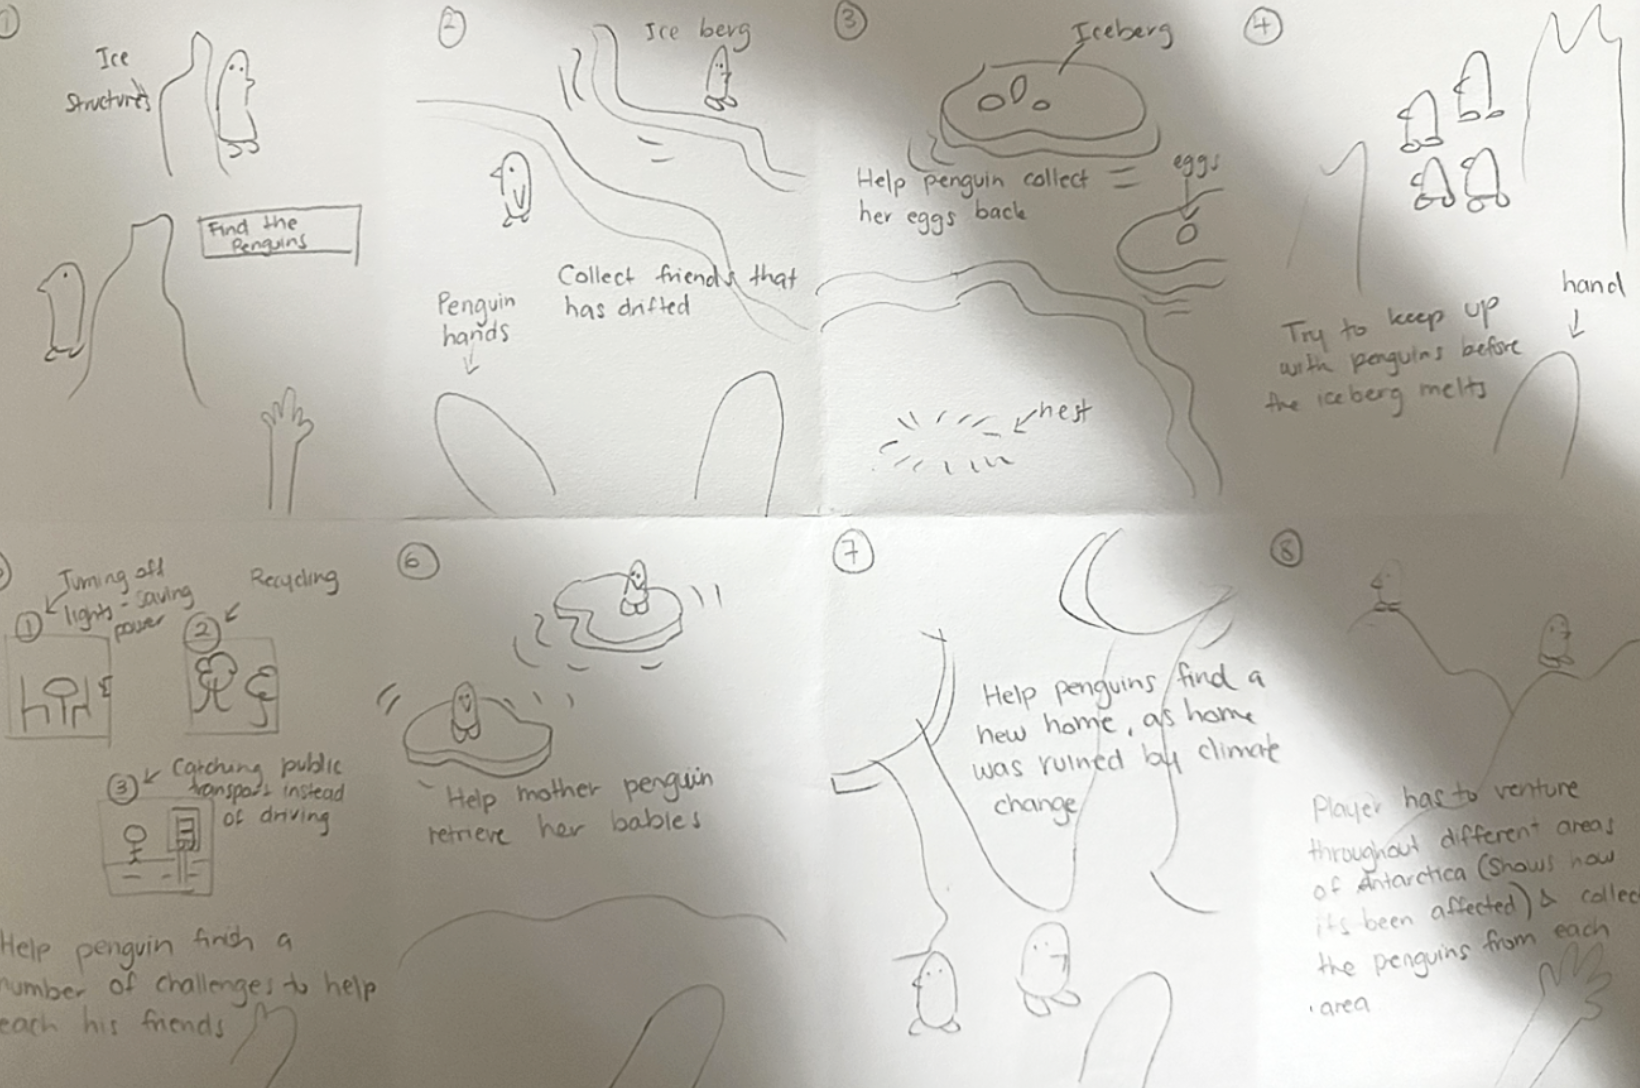 1
Ice
Structures
Find the
Penguins
2
Ice berg
Collect friends that
has drifted
Penguin
hands
3
Iceberg
Help penguin collect
her eggs back
eggs
nest
4
Try to keep up
with penguins before
the iceberg melts
hand
1
Turning off
lights - saving
power
2
Recycling
3
Catching public
transport instead
of driving
Help penguin finish a
number of challenges to help
each his friends
6
Help mother penguin
retrieve her babies
7
Help penguins find a
new home, as home
was ruined by climate
change
8
Player has to venture
throughout different areas
of Antarctica (Shows how
it's been affected) & collect
the penguins from each
area